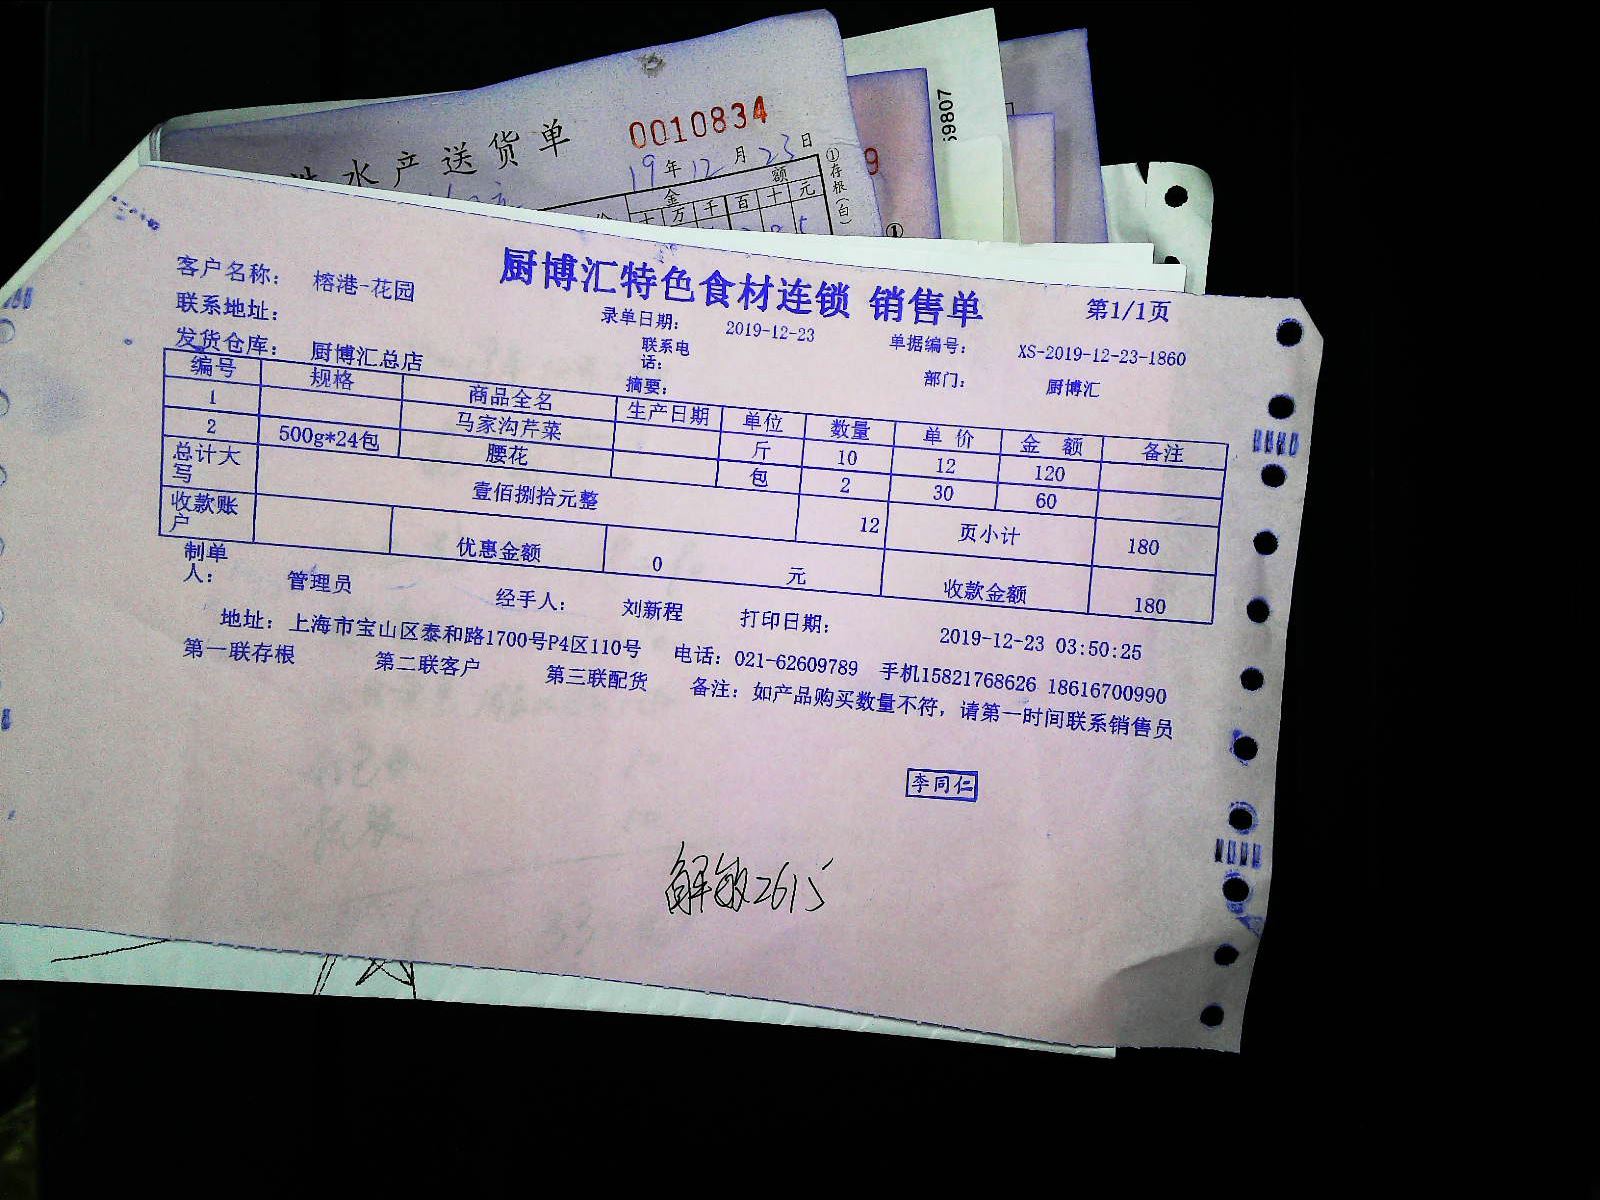 水产送货单
0010834
19年12月23日
金 额
万千百十元
①存根(白)
59807
①
厨博汇特色食材连锁 销售单
第1/1页
客户名称: 榕港-花园
录单日期: 2019-12-23
单据编号: XS-2019-12-23-1860
联系地址:
联系电话:
部门: 厨博汇
发货仓库: 厨博汇总店
摘要:
编号 规格 商品全名 生产日期 单位 数量 单 价 金 额 备注
1 马家沟芹菜 斤 10 12 120
2 500g*24包 腰花 包 2 30 60
总计大写 壹佰捌拾元整 12 页小计 180
收款账户 优惠金额 0 元 收款金额 180
制单人: 管理员 经手人: 刘新程 打印日期: 2019-12-23 03:50:25
地址: 上海市宝山区泰和路1700号P4区110号 电话: 021-62609789 手机15821768626 18616700990
第一联存根 第二联客户 第三联配货 备注: 如产品购买数量不符, 请第一时间联系销售员
李同仁
解敏2615